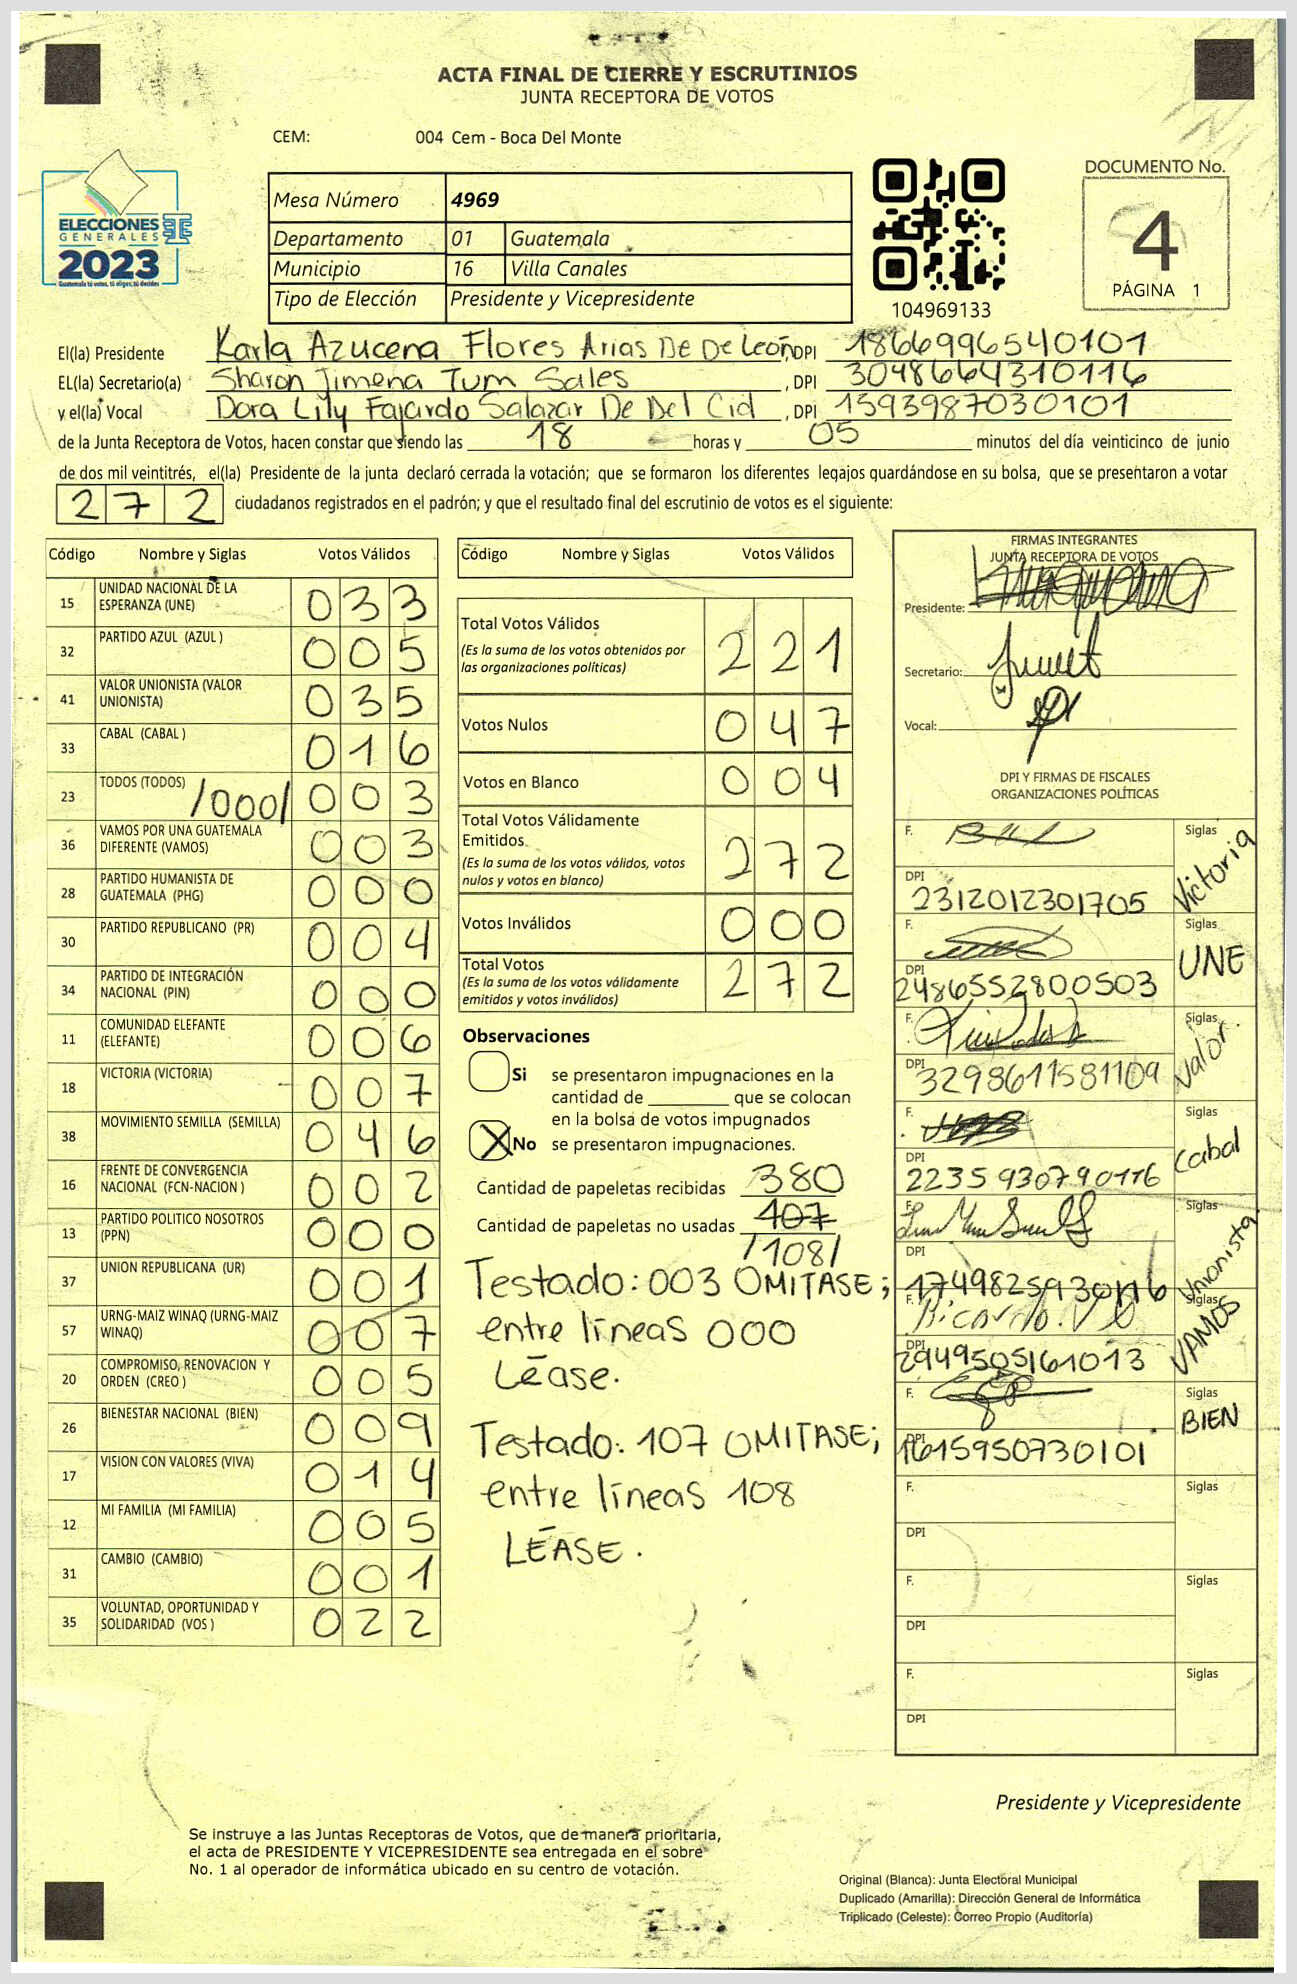 ACTA FINAL DE CIERRE Y ESCRUTINIOS
JUNTA RECEPTORA DE VOTOS
CEM: 004 Cem - Boca Del Monte
ELECCIONES
GENERALES
2023
Guatemala tú votas, tú eliges, tú decides
Mesa Número 4969
Departamento 01 Guatemala
Municipio 16 Villa Canales
Tipo de Elección Presidente y Vicepresidente
104969133
DOCUMENTO No.
4
PÁGINA 1
El(la) Presidente Karla Azucena Flores Arias De De León, DPI 1866996540101
EL(la) Secretario(a) Sharon Jimena Tum Sales, DPI 3048664310116
y el(la) Vocal Dora Lily Fajardo Salazar De Del Cid, DPI 1593987030101
de la Junta Receptora de Votos, hacen constar que siendo las 18 horas y 05 minutos del día veinticinco de junio
de dos mil veintitrés, el(la) Presidente de la junta declaró cerrada la votación; que se formaron los diferentes legajos quardándose en su bolsa, que se presentaron a votar
272 ciudadanos registrados en el padrón; y que el resultado final del escrutinio de votos es el siguiente:
Código Nombre y Siglas Votos Válidos
15 UNIDAD NACIONAL DE LA ESPERANZA (UNE) 033
32 PARTIDO AZUL (AZUL ) 005
41 VALOR UNIONISTA (VALOR UNIONISTA) 035
33 CABAL (CABAL ) 016
23 TODOS (TODOS) /000/ 003
36 VAMOS POR UNA GUATEMALA DIFERENTE (VAMOS) 003
28 PARTIDO HUMANISTA DE GUATEMALA (PHG) 000
30 PARTIDO REPUBLICANO (PR) 004
34 PARTIDO DE INTEGRACIÓN NACIONAL (PIN) 000
11 COMUNIDAD ELEFANTE (ELEFANTE) 006
18 VICTORIA (VICTORIA) 007
38 MOVIMIENTO SEMILLA (SEMILLA) 046
16 FRENTE DE CONVERGENCIA NACIONAL (FCN-NACION ) 002
13 PARTIDO POLITICO NOSOTROS (PPN) 000
37 UNION REPUBLICANA (UR) 001
57 URNG-MAIZ WINAQ (URNG-MAIZ WINAQ) 007
20 COMPROMISO, RENOVACION Y ORDEN (CREO ) 005
26 BIENESTAR NACIONAL (BIEN) 009
17 VISION CON VALORES (VIVA) 014
12 MI FAMILIA (MI FAMILIA) 005
31 CAMBIO (CAMBIO) 001
35 VOLUNTAD, OPORTUNIDAD Y SOLIDARIDAD (VOS ) 022
Código Nombre y Siglas Votos Válidos
Total Votos Válidos 221
(Es la suma de los votos obtenidos por
las organizaciones políticas)
Votos Nulos 047
Votos en Blanco 004
Total Votos Válidamente
Emitidos 272
(Es la suma de los votos válidos, votos
nulos y votos en blanco)
Votos Inválidos 000
Total Votos 272
(Es la suma de los votos válidamente
emitidos y votos inválidos)
Observaciones
Si se presentaron impugnaciones en la
cantidad de que se colocan
en la bolsa de votos impugnados
X No se presentaron impugnaciones.
Cantidad de papeletas recibidas 380
Cantidad de papeletas no usadas 107
/108/
Testado: 003 OMITASE;
entre líneas 000
Léase.
Testado: 107 OMITASE;
entre líneas 108
LÉASE.
FIRMAS INTEGRANTES
JUNTA RECEPTORA DE VOTOS
Presidente:
Secretario:
Vocal:
DPI Y FIRMAS DE FISCALES
ORGANIZACIONES POLÍTICAS
F. Siglas Victoria
DPI 2312012301705
F. Siglas UNE
DPI 2486552800503
F. Siglas Valor.
DPI 3298611581109
F. Siglas Cabal
DPI 2235930790116
F. Siglas Unionista
DPI 1749825930116
F. Ricardo Siglas VAMOS
DPI 2949505161013
F. Siglas BIEN
DPI 1615950730101
F. Siglas
DPI
F. Siglas
DPI
F. Siglas
DPI
Presidente y Vicepresidente
Se instruye a las Juntas Receptoras de Votos, que de manera prioritaria,
el acta de PRESIDENTE Y VICEPRESIDENTE sea entregada en el sobre
No. 1 al operador de informática ubicado en su centro de votación.
Original (Blanca): Junta Electoral Municipal
Duplicado (Amarilla): Dirección General de Informática
Triplicado (Celeste): Correo Propio (Auditoría)